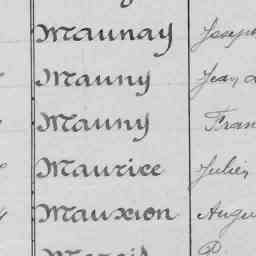 Maunay Joseph
Mauny Jean
Mauny Fran
Maurice Julien
Mauxion Augu